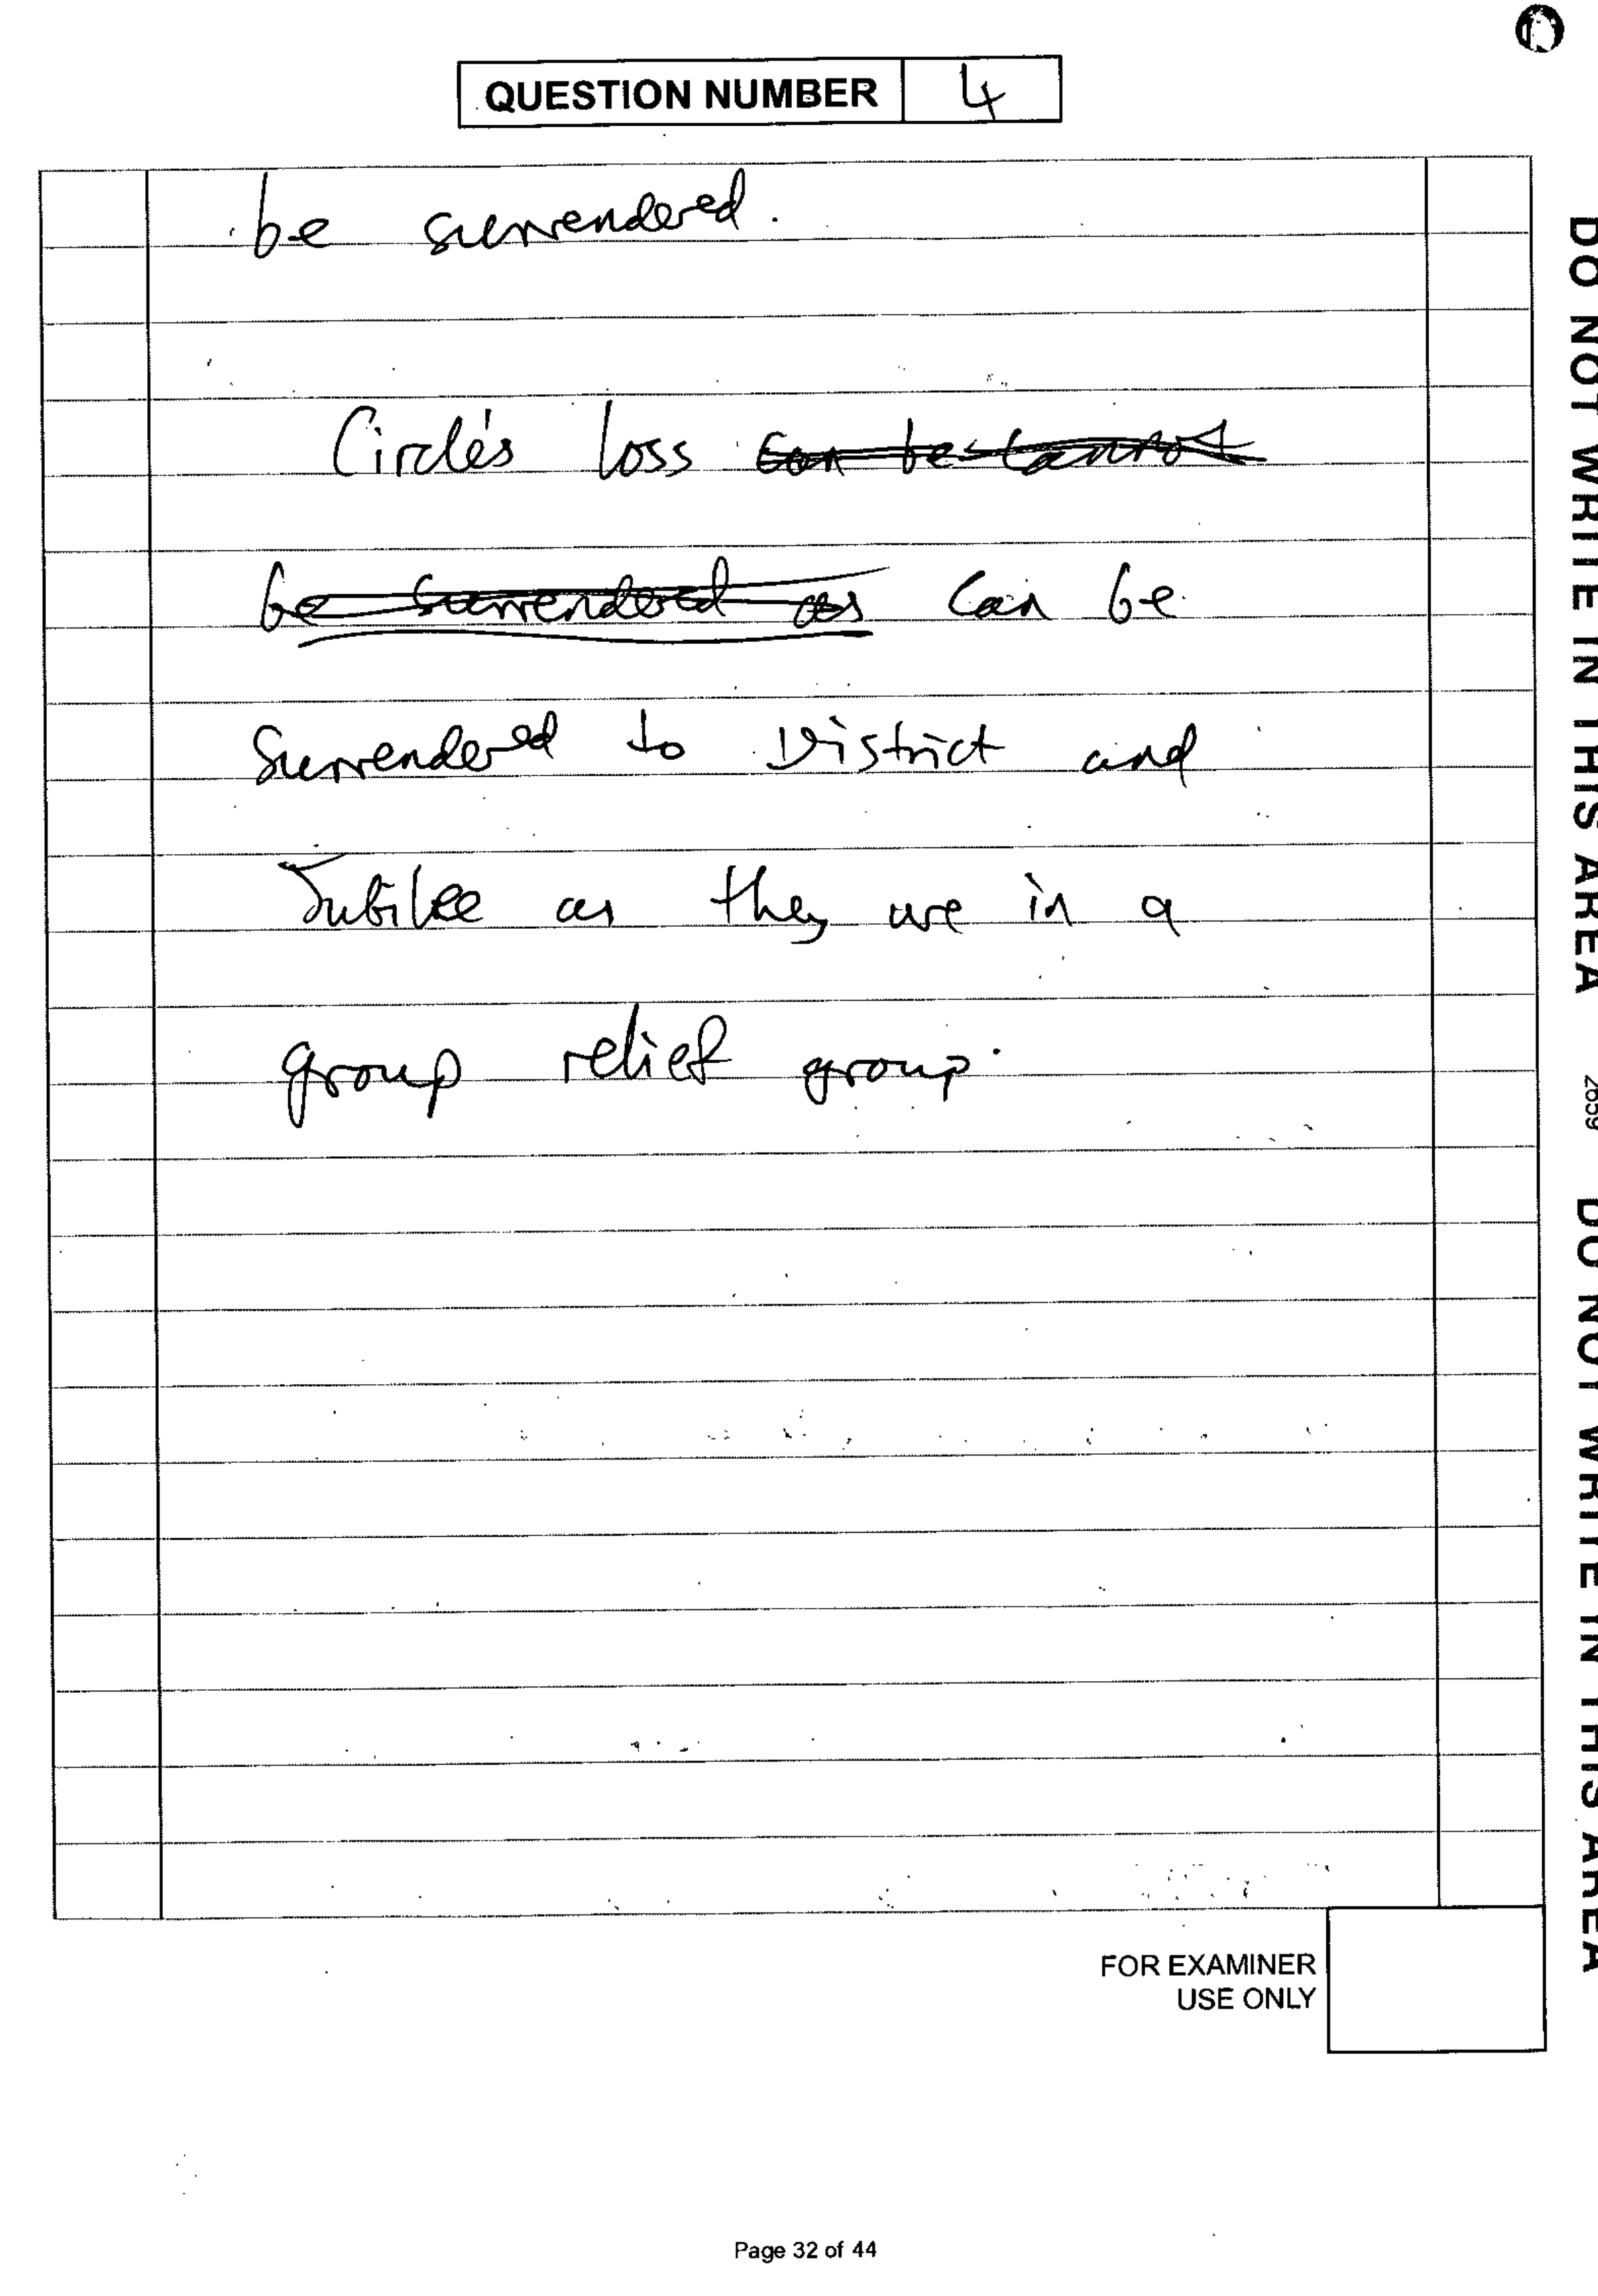 QUESTION NUMBER 4
be surrendered.
Circle's loss can be cannot
be surrendered as can be
surrendered to District and
Jubilee as they are in a
group relief group.
FOR EXAMINER
USE ONLY
Page 32 of 44
DO NOT WRITE IN THIS AREA 2659 DO NOT WRITE IN THIS AREA